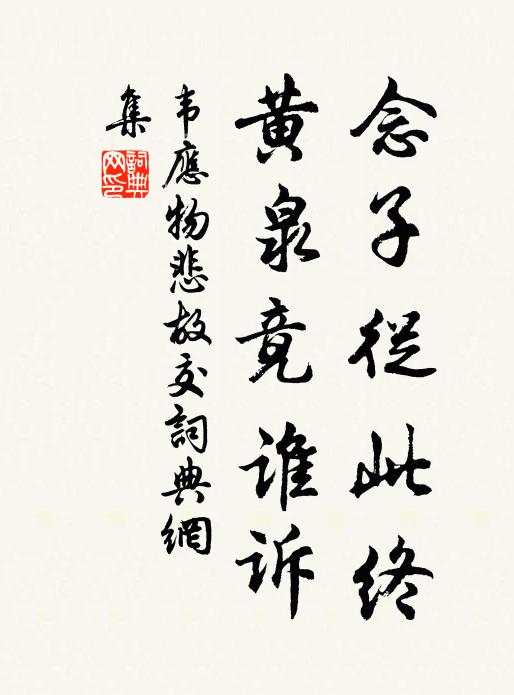 念子從此終
黄泉竟誰訴
韦應物悲故交詞典網
集
詞典网印